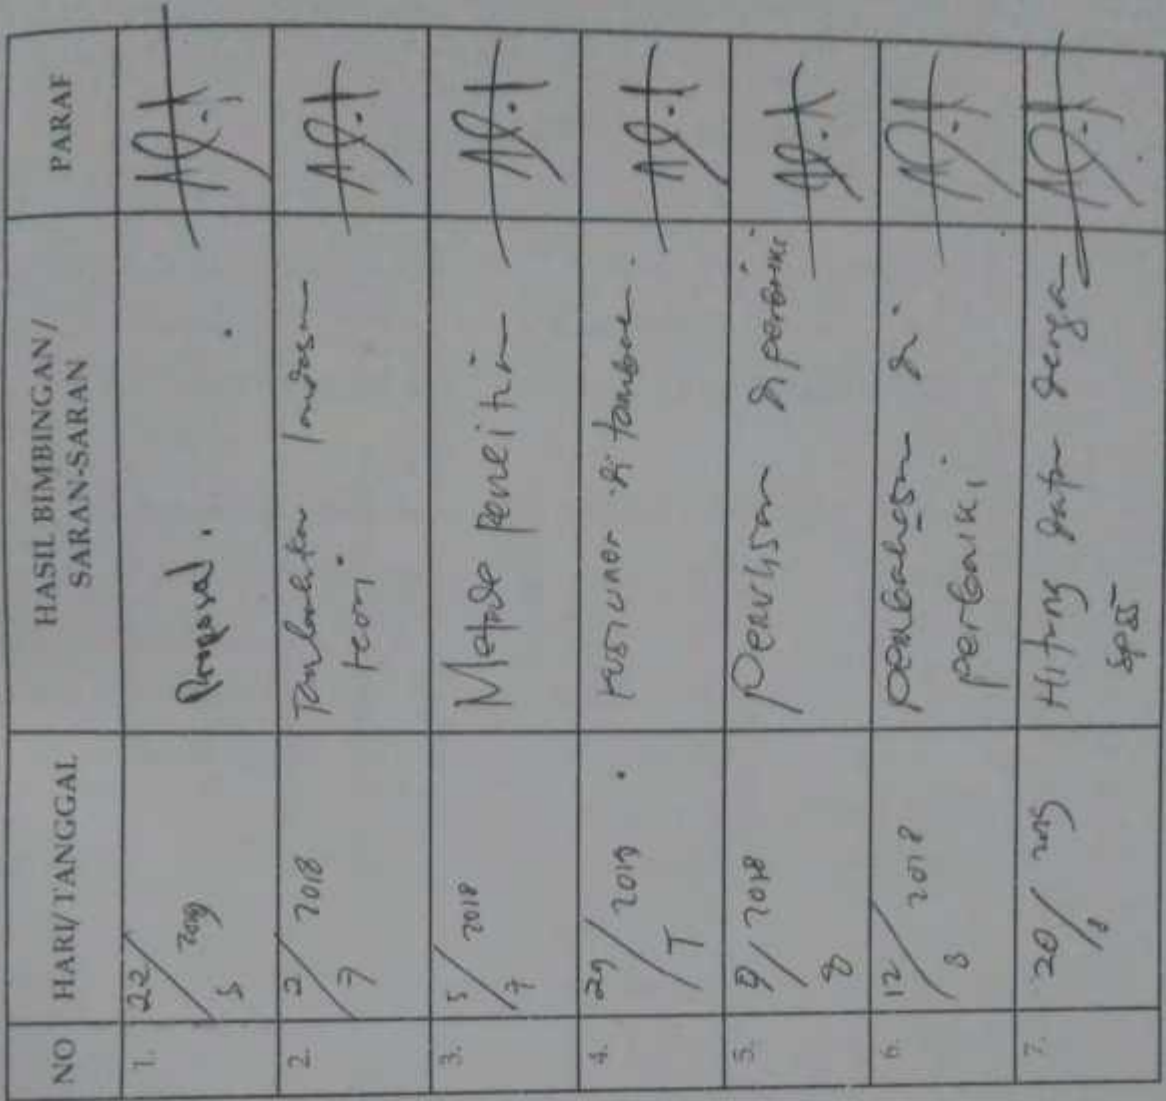 NO HARI/TANGGAL HASIL BIMBINGAN / SARAN-SARAN PARAF
1. 22/5 Proposal.
2. 2/7 2018 Tambahkan landasan
teori
3. 5/7 2018 Metode penelitian
4. 29/7 2018 kusioner ditambah.
5. 9/8 2018 Penulisan diperbaiki
6. 12/8 2018 pembahasan di
perbaiki
7. 20/8 Hitung data dengan
SPSS